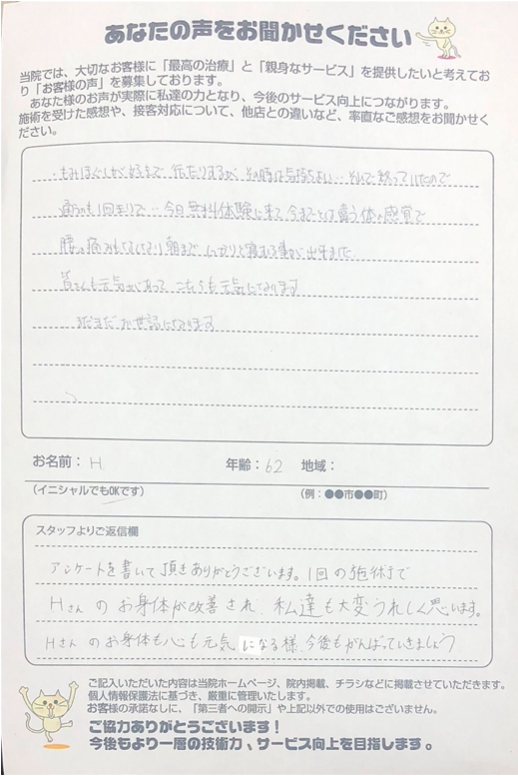 あなたの声をお聞かせください
当院では、大切なお客様に「最高の治療」と「親身なサービス」を提供したいと考えてお
り「お客様の声」を募集しております。
あなた様のお声が実際に私達の力となり、今後のサービス向上につながります。
施術を受けた感想や、接客対応について、他店との違いなど、率直なご感想をお聞かせく
ださい。
もみほぐしが好きで 行ったりするが、その時は気持ちよい… それで終っていたので
通うのも1回きりで… 今日無料体験に来て、今までとは違う体の感覚で
腰の痛みもなくなり朝まで しっかりと寝れる事が出来ました
皆さんも元気があって こちらも元気になります
まだまだお世話になります
お名前：H 年齢：62 地域：
(イニシャルでもOKです) (例：●●市●●町)
スタッフよりご返信欄
アンケートを書いて頂きありがとうございます。1回の施術で
Hさん のお身体が改善され、私達も大変うれしく思います。
Hさん のお身体も心も元気になる様、今後もがんばっていきましょう
ご記入いただいた内容は当院ホームページ、院内掲載、チラシなどに掲載させていただきます。
個人情報保護法に基づき、厳重に管理いたします。
お客様の承諾なしに、「第三者への開示」や上記以外での使用はございません。
ご協力ありがとうございます！
今後もより一層の技術力、サービス向上を目指します。